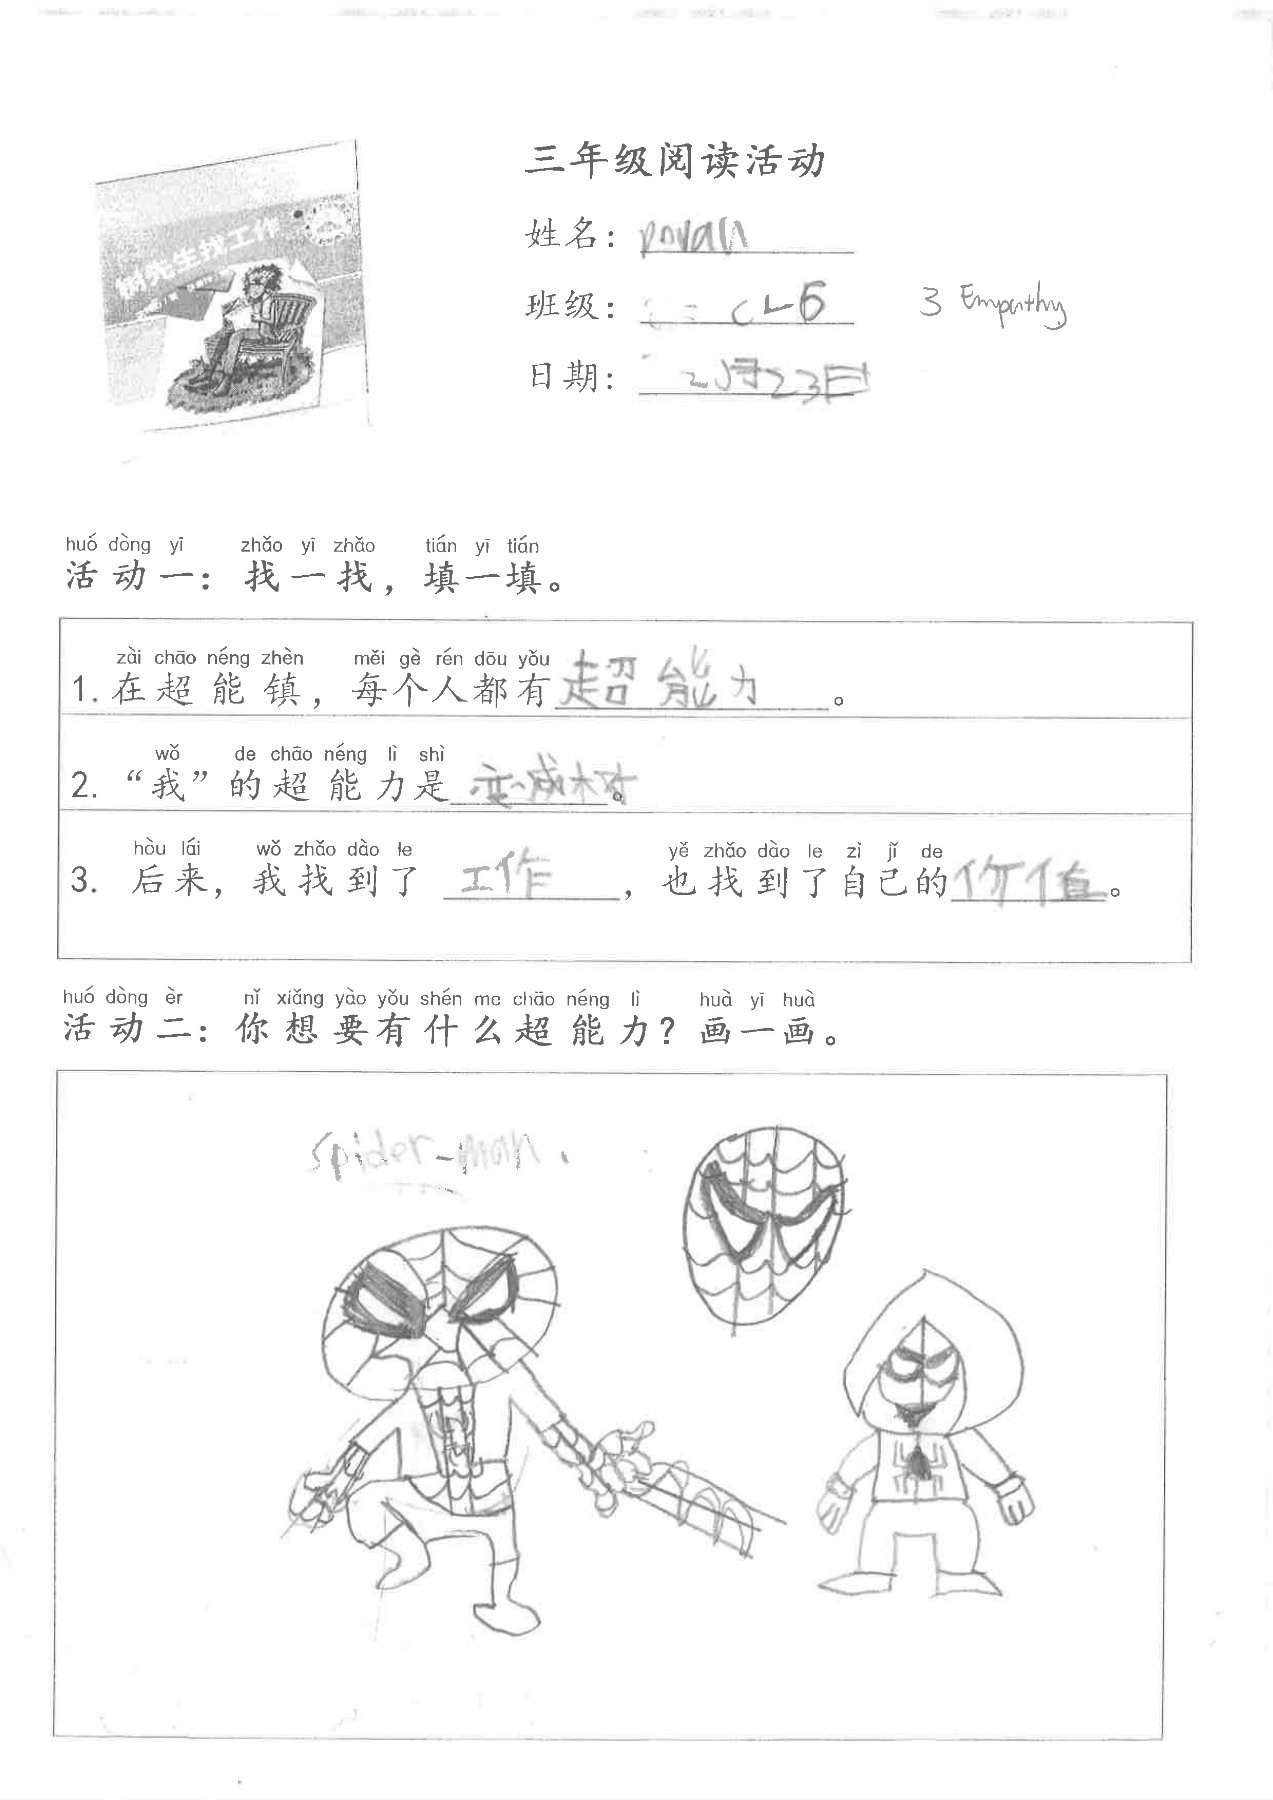 三年级阅读活动
树先生找工作
姓名：
班级： CL6 3 Empathy
日期： 2月23日
huó dòng yī zhǎo yī zhǎo tián yī tián
活动一：找一找，填一填。
zài chāo néng zhèn měi gè rén dōu yǒu
1. 在超能镇，每个人都有超能力。
wǒ de chāo néng lì shì
2. “我”的超能力是变成树。
hòu lái wǒ zhǎo dào le yě zhǎo dào le zì jǐ de
3. 后来，我找到了 工作，也找到了自己的价值。
huó dòng èr nǐ xiǎng yào yǒu shén me chāo néng lì huà yī huà
活动二：你想要有什么超能力？画一画。
Spider-man.